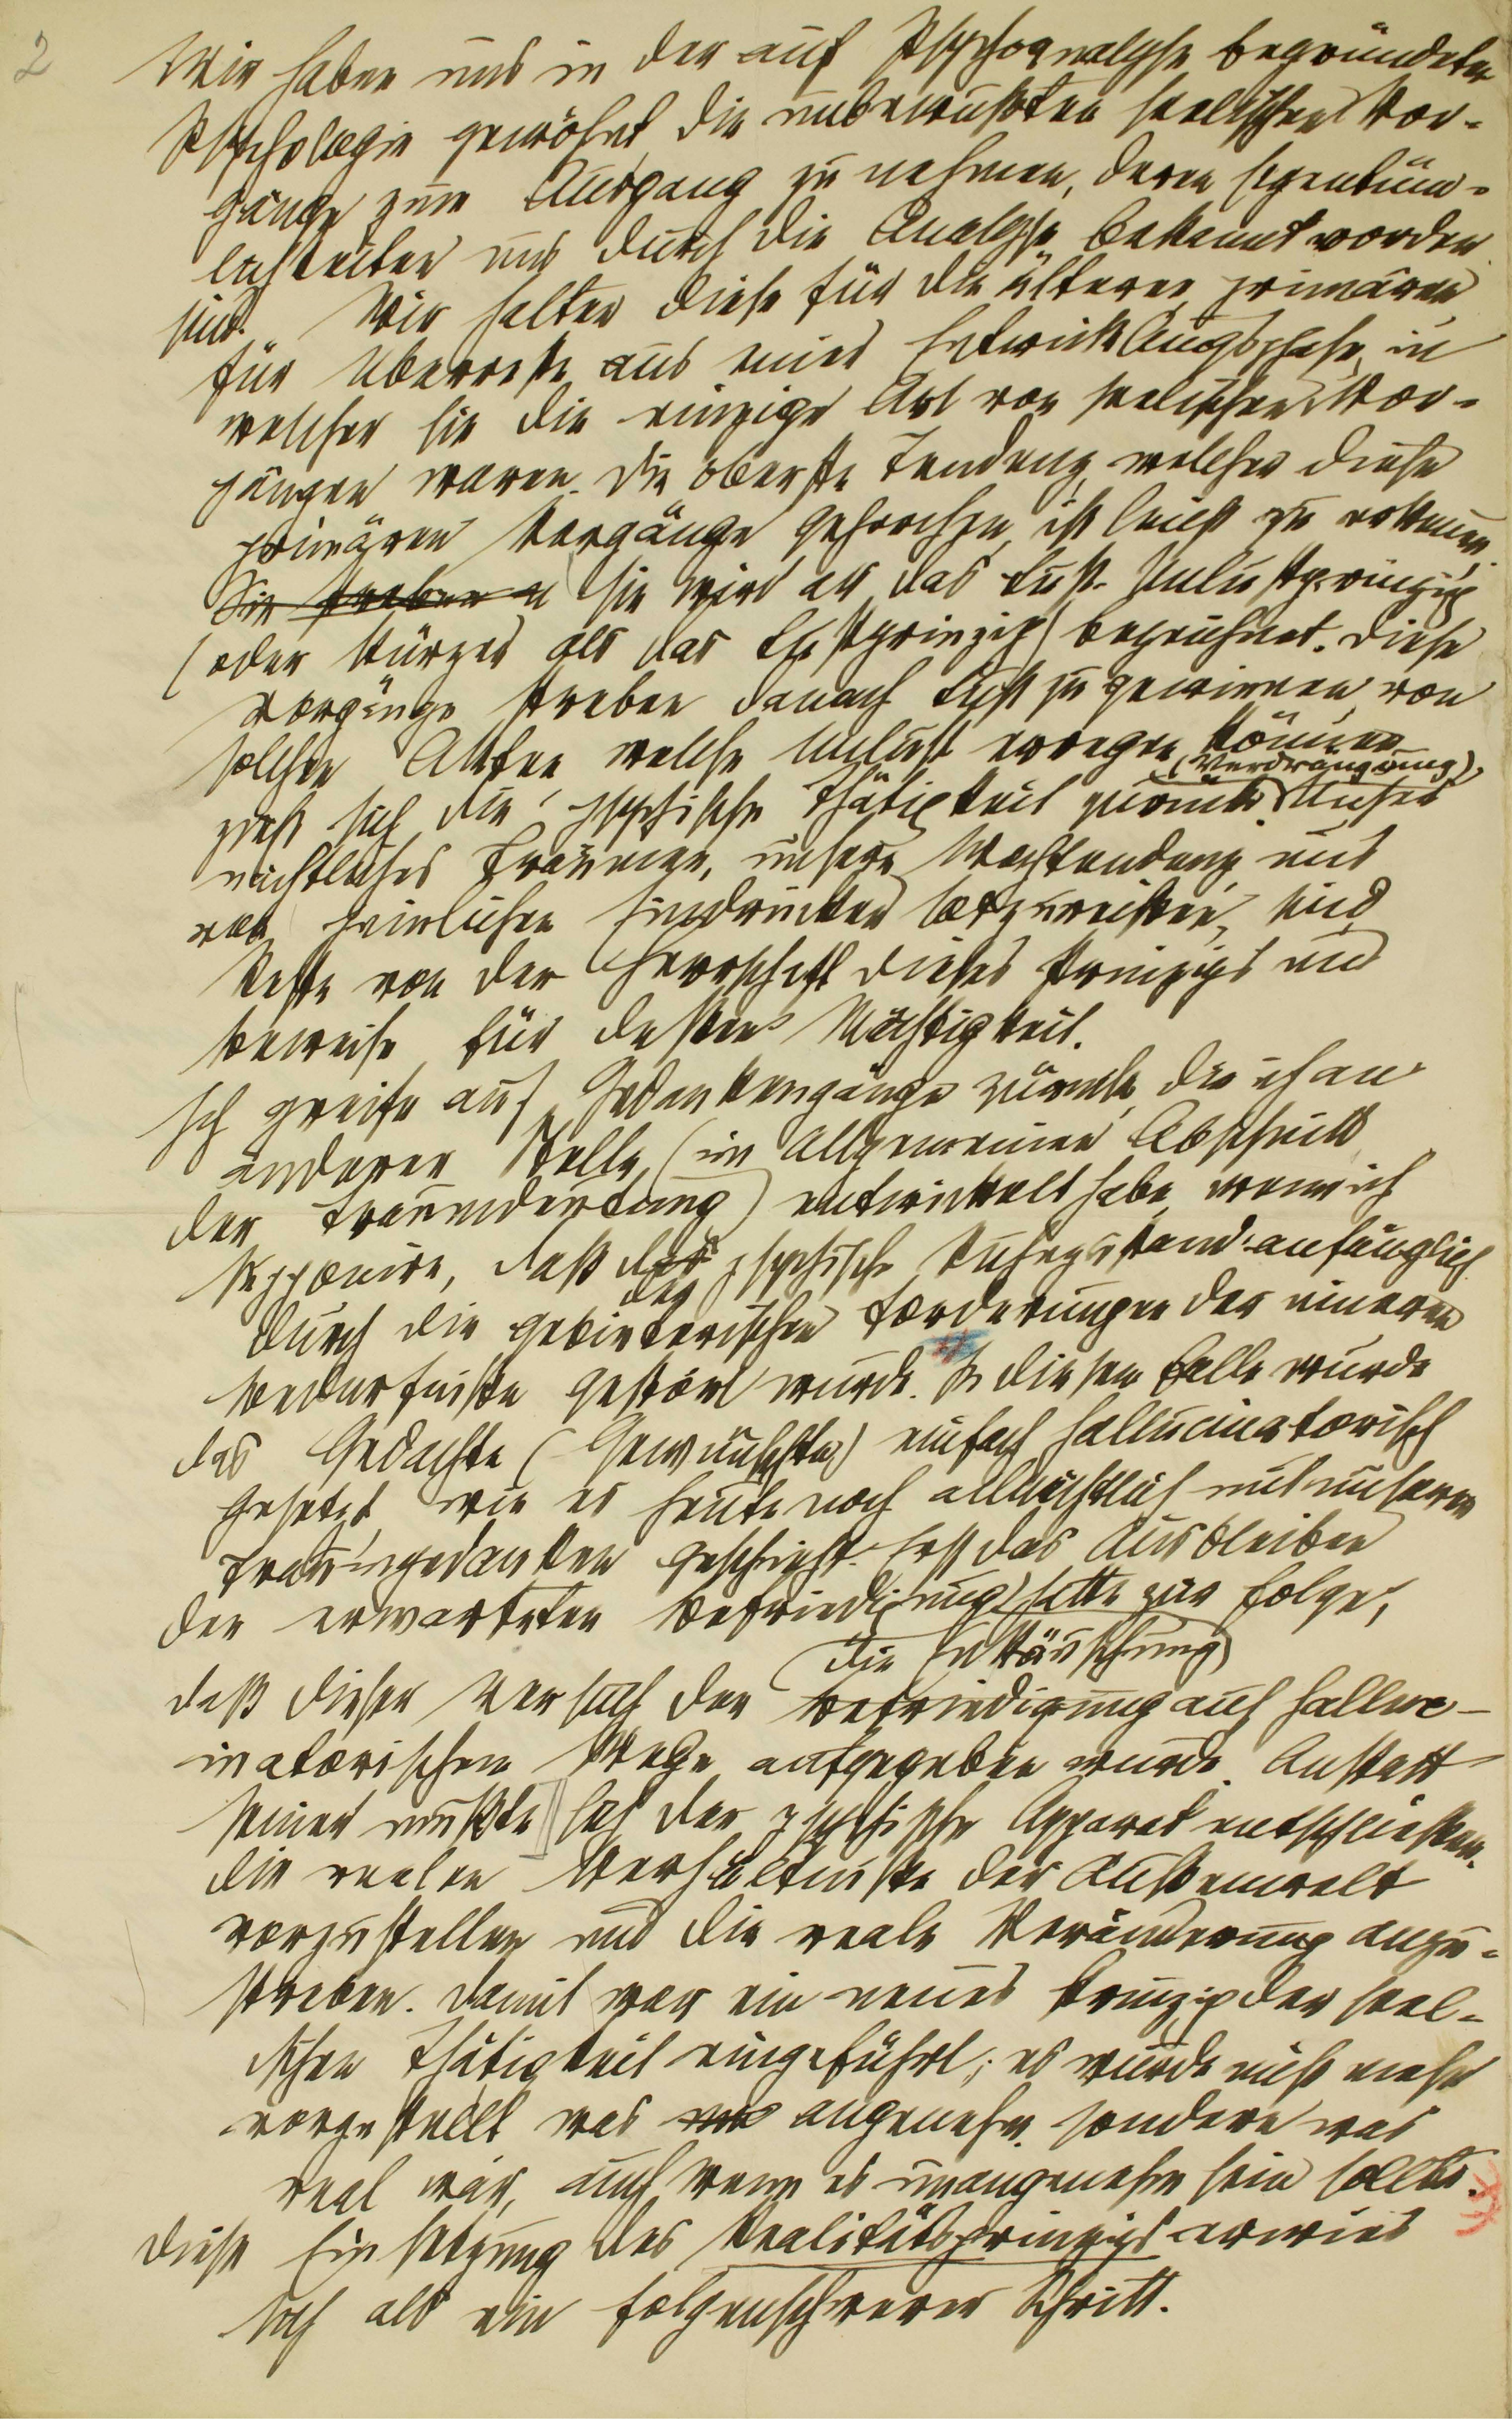 2
Wir haben uns in der auf Psychoanalyse begründeten
Psychologie gewöhnt, die unbewußten seelischen Vor-
gänge zum Ausgang zu nehmen, deren Eigentüm-
lichkeiten uns durch die Analyse bekannt worden
sind. Wir halten diese für die älteren, primären,
für Überreste aus einer Entwicklungsphase, in
welcher sie die einzige Art von seelischen Vor-
gängen waren. Die oberste Tendenz, welcher diese
primären Vorgänge gehorchen, ist leicht zu erkennen,
Sie streben a sie wird als das Lust-Unlustprinzip
(oder kürzer als das Lustprinzip) bezeichnet. Diese
Vorgänge streben danach Lust zu gewinnen, von
solchen Akten welche Unlust erregen können
zieht sich die psychische Thätigkeit zurück (Verdrängung). Unser
nächtliches Träumen, unsere Wachtendenz uns
von peinlichen Eindrücken loszureißen, sind
Reste von der Herrschaft dieses Prinzips und
Beweise für dessen Mächtigkeit.
Ich greife auf Gedankengänge zurück, die ich an
anderer Stelle (im Allgemeinen Abschnitt
der Traumdeutung) entwickelt habe, wenn ich
supponire, daß der psychische Ruhezustand anfänglich
durch die gebieterischen Forderungen der inneren
Bedürfnisse gestört wurde. In diesem Falle wurde
das Gedachte (Gewünschte) einfach hallucinatorisch
gesetzt, wie es heute noch allnächtlich mit unseren
Traumgedanken geschieht. Erst das Ausbleiben
der erwarteten Befriedigung, die Enttäuschung, hatte zur Folge,
daß dieser Versuch der Befriedigung auf halluc-
inatorischem Wege aufgegeben wurde. Anstatt
seiner mußte sich der psychische Apparat entschließen,
die realen Verhältnisse der Außenwelt
vorzustellen und die reale Veränderung anzu-
streben. Damit war ein neues Prinzip der seel-
ischen Thätigkeit eingeführt; es wurde nicht mehr
vorgestellt was angenehm, sondern was
real war, auch wenn es unangenehm sein sollte.
Diese Einsetzung des Realitätsprinzips erwies
sich als ein folgenschwerer Schritt.